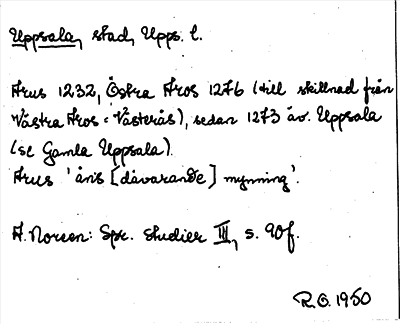 Uppsala, stad, Upps. l.
Arus 1232, Östra Aros 1276 (till skillnad från
Västra Aros = Västerås), sedan 1273 äv. Uppsala
(se Gamla Uppsala).
Arus 'åns [dåvarande] mynning'.
A. Noreen: Spr. studier III, s. 90f.
R.O. 1950